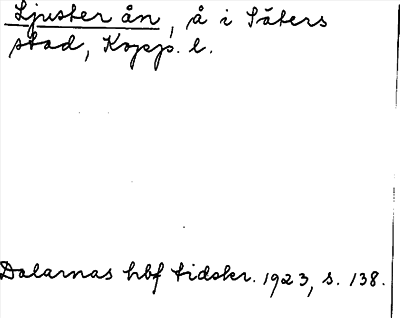 Ljuster ån, å i Säters
stad, Kopp. l.
Dalarnas hbf tidskr. 1923, s. 138.